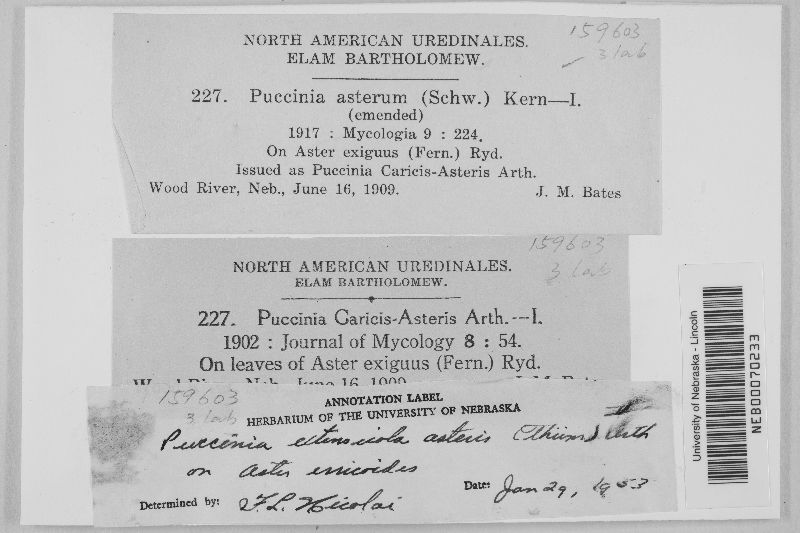 159603
NORTH AMERICAN UREDINALES. 3 lab
ELAM BARTHOLOMEW.
227. Puccinia asterum (Schw.) Kern—I.
(emended)
1917 : Mycologia 9 : 224.
On Aster exiguus (Fern.) Ryd.
Issued as Puccinia Caricis-Asteris Arth.
Wood River, Neb., June 16, 1909. J. M. Bates
159603
NORTH AMERICAN UREDINALES. 3 lab
ELAM BARTHOLOMEW.
227. Puccinia Caricis-Asteris Arth.—I.
1902 : Journal of Mycology 8 : 54.
On leaves of Aster exiguus (Fern.) Ryd.
Neb., June 16, 1909
159603 ANNOTATION LABEL
3 lab HERBARIUM OF THE UNIVERSITY OF NEBRASKA
Puccinia extensicola asteris (Thüm) Arth
on Aster ericoides
Determined by: F.L. Nicolai Date: Jan 29, 1953
University of Nebraska - Lincoln
NEB00070233